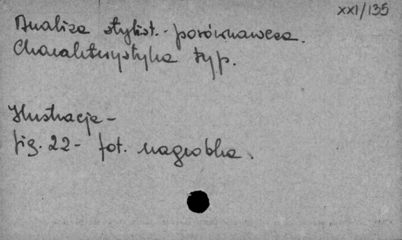 XXI/135
Analiza stylist.- porównawcza.
Charakterystyka typ.
Ilustracje -
fig. 22 - fot. nagrobka.